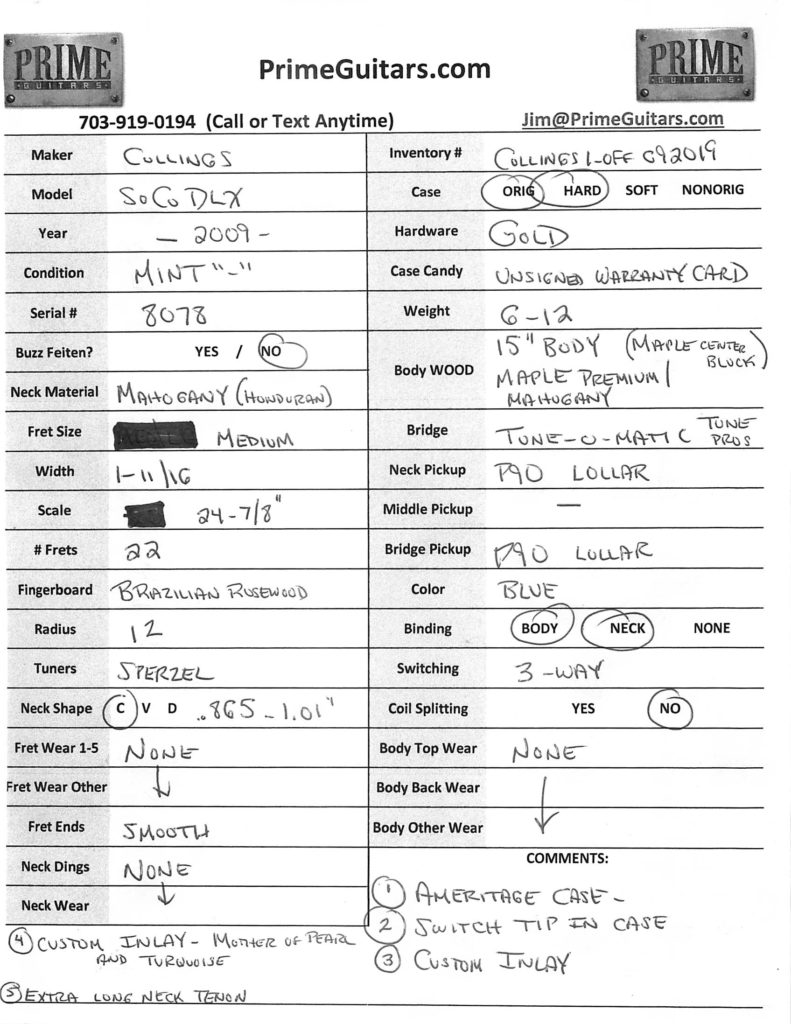 PRIME
GUITARS
PrimeGuitars.com
PRIME
GUITARS
703-919-0194 (Call or Text Anytime)
Jim@PrimeGuitars.com
Maker COLLINGS
Inventory # COLLINGS 1-OFF 092019
Model SoCo DLX
Case ORIG HARD SOFT NONORIG
Year - 2009 -
Hardware GOLD
Condition MINT "-"
Case Candy UNSIGNED WARRANTY CARD
Serial # 8078
Weight 6-12
Buzz Feiten? YES / NO
Body WOOD 15" BODY (MAPLE CENTER BLOCK)
MAPLE PREMIUM/
MAHOGANY
Neck Material MAHOGANY (HONDURAN)
Fret Size MEDIUM
Bridge TUNE-O-MATIC TONE PROS
Width 1-11/16
Neck Pickup P90 LOLLAR
Scale 24-7/8"
Middle Pickup —
# Frets 22
Bridge Pickup P90 LOLLAR
Fingerboard BRAZILIAN ROSEWOOD
Color BLUE
Radius 12
Binding BODY NECK NONE
Tuners SPERZEL
Switching 3-WAY
Neck Shape C V D .865-1.01"
Coil Splitting YES NO
Fret Wear 1-5 NONE
Body Top Wear NONE
Fret Wear Other
Body Back Wear
Fret Ends SMOOTH
Body Other Wear
Neck Dings NONE
Neck Wear
COMMENTS:
1 AMERITAGE CASE-
2 SWITCH TIP IN CASE
3 CUSTOM INLAY
4 CUSTOM INLAY - MOTHER OF PEARL
AND TURQUOISE
5 EXTRA LONG NECK TENON